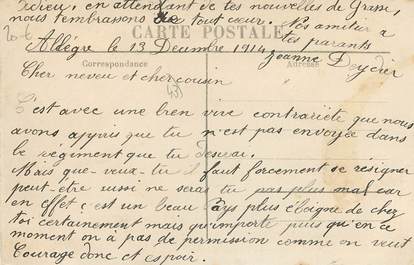 Adieu, en attendant de tes nouvelles de Grasse,
nous t'embrassons de tout cœur. Nos amitiés a
tes parents
CARTE POSTALE
Allègre le 13 Decembre 1914
Jeanne Deydier
Correspondance
Adresse
Cher neveu et cher cousin
C'est avec une bien vive contrariété que nous
avons appris que tu n'est pas envoyée dans
le régiment que tu desirai.
Mais que-veux-tu il faut forcement se résigner
peut-etre aussi ne seras tu pas plus mal car
en effet c'est un beau Pays plus éloigné de chez
toi certainement mais qu'importe puis qu'en ce
moment on à pas de permission comme on veut
Courage donc et espoir.